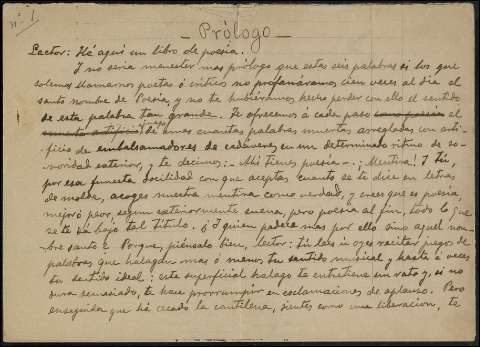 1
— Prólogo —
Lector: Hé aquí un libro de poesía.
Y no sería menester mas prólogo que estas seis palabras si los que
solemos llamarnos poetas ó críticos no profanáramos cien veces al día el
santo nombre de Poesía, y no te hubiéramos hecho perder con ello el sentido
de esta palabra tan grande. Te ofrecemos á cada paso como poesía el
de unas cuantas palabras muertas arregladas con arti-
ficio de embalsamadores de cadáveres en un determinado ritmo de so-
noridad exterior, y te decimos: — Ahí tienes poesía —. ¡Mentira! Y tú,
por esa funesta docilidad con que aceptas cuanto se te dice en letras
de molde, acoges nuestra mentira como verdad, y crees que es poesía,
mejor ó peor, segun exteriormente suena, pero poesía al fin, todo lo que
se te dá bajo tal título. ¿Y quien padece mas por ello sino aquel nom-
bre santo? Porque, piénsalo bien, lector: tú lees ú oyes recitar juegos de
palabras que halagan mas ó menos tu sentido musical y hasta á veces
tu sentido ideal: este superficial halago te entretiene un rato y, si no
dura demasiado, te hace prorrumpir en esclamaciones de aplauso. Pero
enseguida que há cesado la cantilena, sientes como una liberacion, te